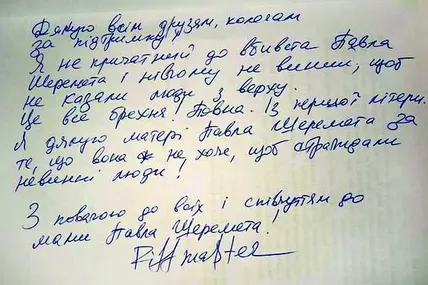 Дякую всім друзям, колегам
за підтримку!
Я не причатний до вбивста Павла
Шеремета і нівчому не винни, щоб
не казали люди з верху.
Це все брехня! Повна. З першої літери.
Я дякую матері Павла Шеремета за
те, що вона ж не хоче, щоб страждали
невинні люди!
З повагою до всіх і співчуттям до
мами Павла Шеремета!
Riffmaster